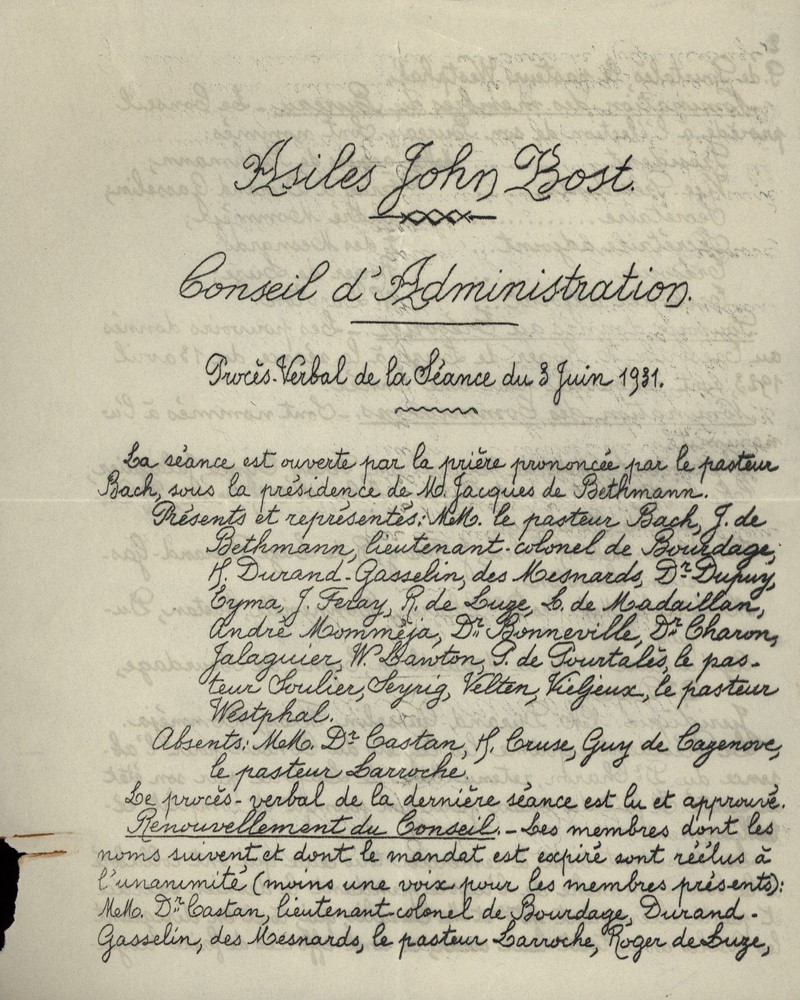 Asiles John Bost.
Conseil d'Administration.
Procès-Verbal de la Séance du 3 Juin 1931.
La séance est ouverte par la prière prononcée par le pasteur
Bach, sous la présidence de M. Jacques de Bethmann.
Présents et représentés: MM. le pasteur Bach, J. de
Bethmann, lieutenant-colonel de Bourdage,
H. Durand-Gasselin, des Mesnards, Dr Dupuy,
Eyma, J. Feray, R. de Luze, L. de Madaillan,
André Momméja, Dr Bonneville, Dr Charon,
Jalaguier, W. Lawton, P. de Pourtalès, le pas-
teur Soulier, Seyrig, Velten, Vieljeux, le pasteur
Westphal.
Absents: MM. Dr Castan, H. Cruse, Guy de Cazenove,
le pasteur Larroche.
Le procès-verbal de la dernière séance est lu et approuvé.
Renouvellement du Conseil. - Les membres dont les
noms suivent et dont le mandat est expiré sont réélus à
l'unanimité (moins une voix pour les membres présents):
MM. Dr Castan, lieutenant-colonel de Bourdage, Durand-
Gasselin, des Mesnards, le pasteur Larroche, Roger de Luze,